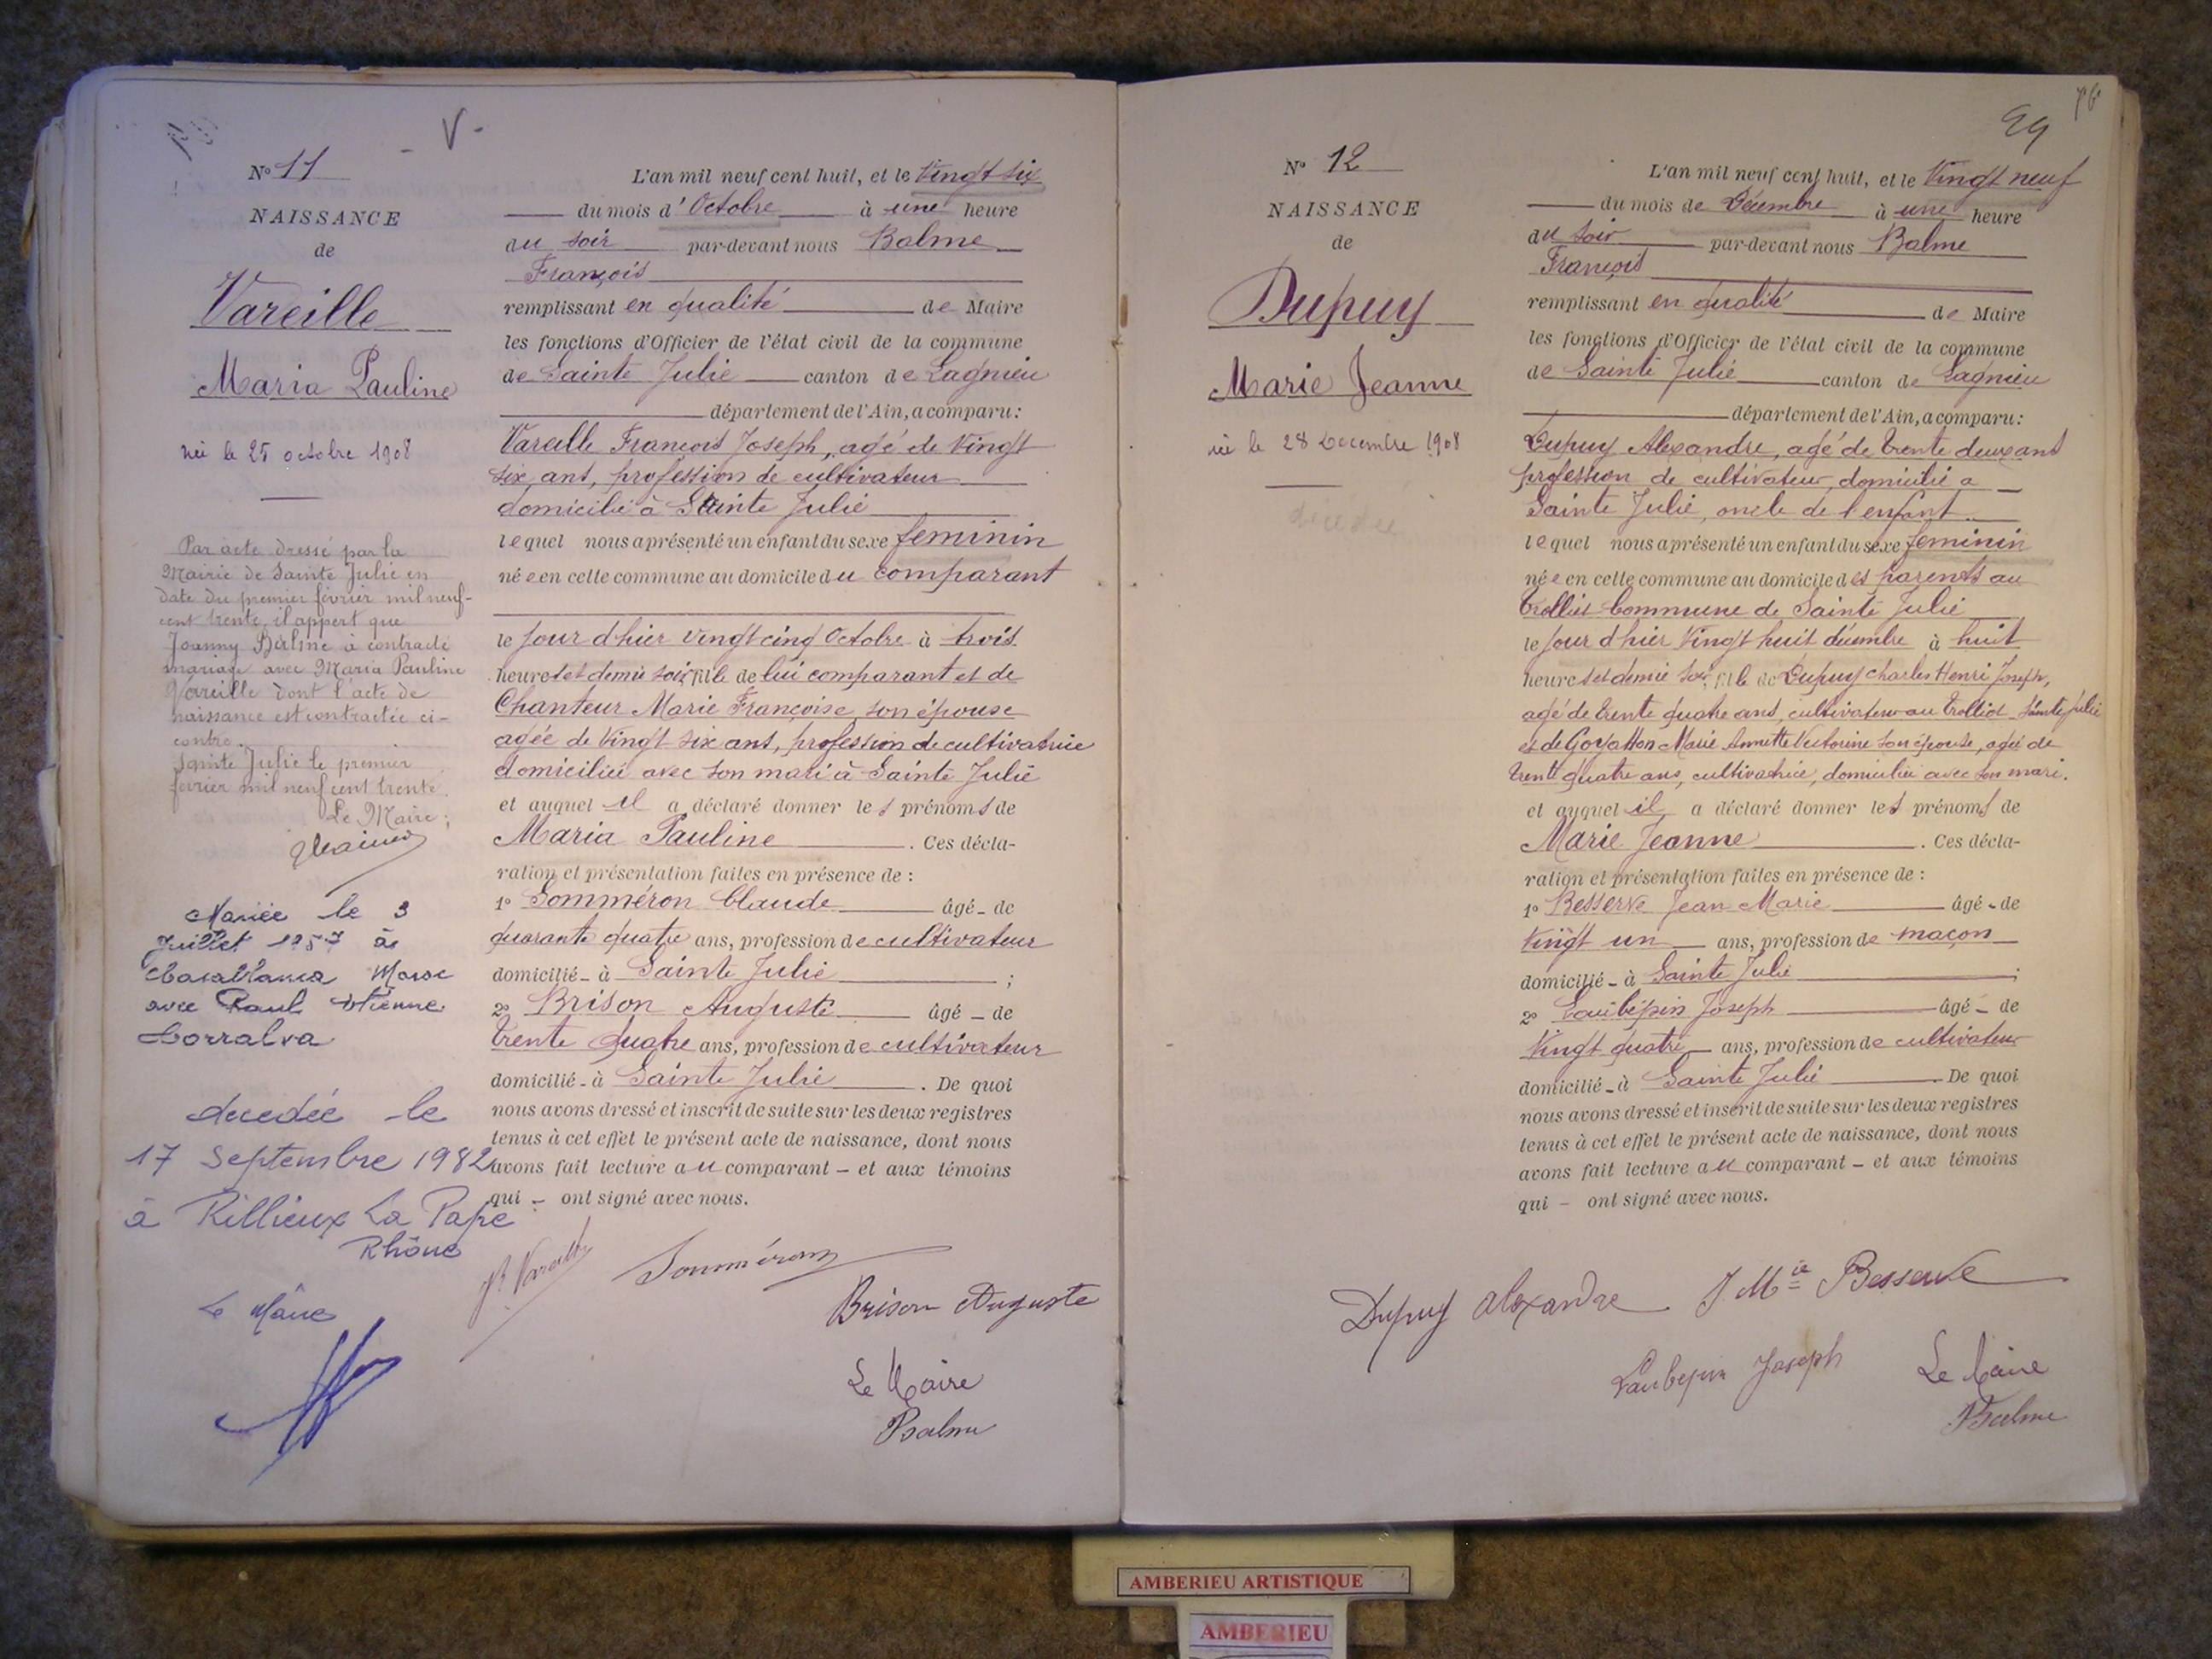 V -
N° 11
NAISSANCE
de
Vareille
Maria Pauline
née le 25 octobre 1908
Par acte dressé par la
Mairie de Sainte Julie en
date du premier février mil neuf-
cent trente, il appert que
Joanny Berline a contracté
mariage avec Maria Pauline
Vareille dont l'acte de
naissance est contractée ci-
contre.
Sainte Julie le premier
février mil neuf cent trente.
Le Maire ;
Mariée le 3
Juillet 1957 à
Casablanca Maroc
avec Paul Etienne
Corralva
decedée le
17 Septembre 1982
à Rillieux La Pape
Rhône
Le Maire
L'an mil neuf cent huit, et le Vingt six
du mois d'Octobre à une heure
du soir par-devant nous Balme
François
remplissant en qualité de Maire
les fonctions d'Officier de l'état civil de la commune
de Sainte Julie canton de Lagnieu
département de l'Ain, a comparu :
Vareille François Joseph, agé de Vingt
six ans, profession de cultivateur
domicilié à Sainte Julie
lequel nous a présenté un enfant du sexe feminin
née en cette commune au domicile du comparant
le jour d'hier vingt cinq Octobre à trois
heures et demie soir, fille de lui comparant et de
Chanteur Marie Françoise son épouse
agée de Vingt six ans, profession de cultivatrice
domiciliée avec son mari à Sainte Julie
et auquel il a déclaré donner les prénoms de
Maria Pauline . Ces décla-
ration et présentation faites en présence de :
1° Somméron Claude âgé - de
quarante quatre ans, profession de cultivateur
domicilié - à Sainte Julie ;
2° Brison Auguste âgé - de
trente quatre ans, profession de cultivateur
domicilié - à Sainte Julie . De quoi
nous avons dressé et inscrit de suite sur les deux registres
tenus à cet effet le présent acte de naissance, dont nous
avons fait lecture au comparant - et aux témoins
qui - ont signé avec nous.
Vareille Somméron
Brison Auguste
Le Maire
Balme
99
76
N° 12
NAISSANCE
de
Dupuy
Marie Jeanne
née le 28 Decembre 1908
decedee
L'an mil neuf cent huit, et le Vingt neuf
du mois de Décembre à une heure
du soir par-devant nous Balme
François
remplissant en qualité de Maire
les fonctions d'Officier de l'état civil de la commune
de Sainte Julie canton de Lagnieu
département de l'Ain, a comparu :
Dupuy Alexandre, agé de trente deux ans
profession de cultivateur, domicilié a
Sainte Julie, oncle de l'enfant
lequel nous a présenté un enfant du sexe feminin
née en cette commune au domicile des parents au
Trolliet Commune de Sainte Julie
le jour d'hier Vingt huit décembre à huit
heures et demie soir, fille de Dupuy Charles Henri Joseph,
agé de trente quatre ans, cultivateur au Trolliet Sainte Julie
et de Goyatton Marie Annette Victorine son épouse, agée de
trente quatre ans, cultivatrice, domiciliée avec son mari.
et auquel il a déclaré donner les prénoms de
Marie Jeanne . Ces décla-
ration et présentation faites en présence de :
1° Besserve Jean Marie âgé - de
Vingt un ans, profession de maçon
domicilié - à Sainte Julie ;
2° Laubépin Joseph âgé - de
Vingt quatre ans, profession de cultivateur
domicilié - à Sainte Julie . De quoi
nous avons dressé et inscrit de suite sur les deux registres
tenus à cet effet le présent acte de naissance, dont nous
avons fait lecture au comparant - et aux témoins
qui - ont signé avec nous.
Dupuy Alexandre J Mie Besserve
Laubepin Joseph Le Maire
Balme
AMBERIEU ARTISTIQUE
AMBERIEU